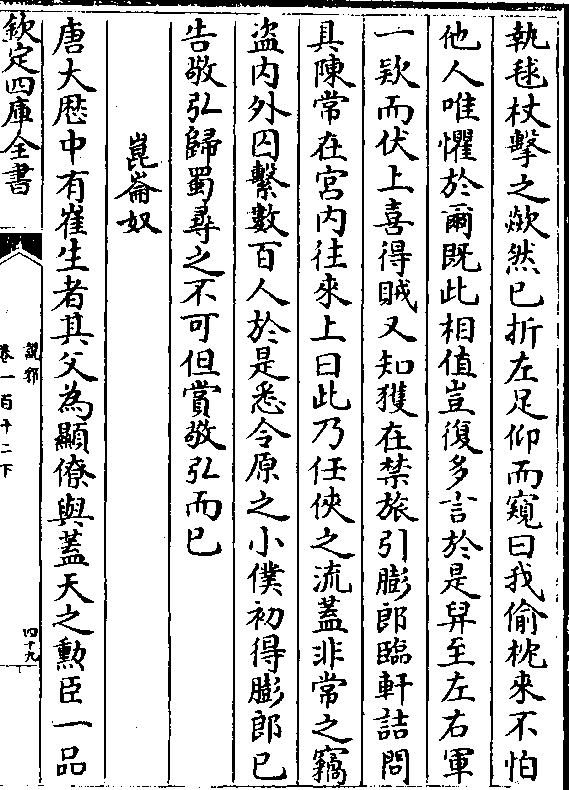 執毬杖擊之歘然已折左足仰而窺曰我偷枕來不怕
他人唯懼於爾既此相值豈復多言於是舁至左右軍
一欵而伏上喜得賊又知獲在禁旅引膨郎臨軒詰問
具陳常在宮内往來上曰此乃任俠之流蓋非常之竊
盗内外囚繫數百人於是悉令原之小僕初得膨郎已
告敬弘歸蜀尋之不可但賞敬弘而已
崑崙奴
唐大厯中有崔生者其父為顯僚與蓋天之勲臣一品
欽定四庫全書
說郛
卷一百十二下
四十九